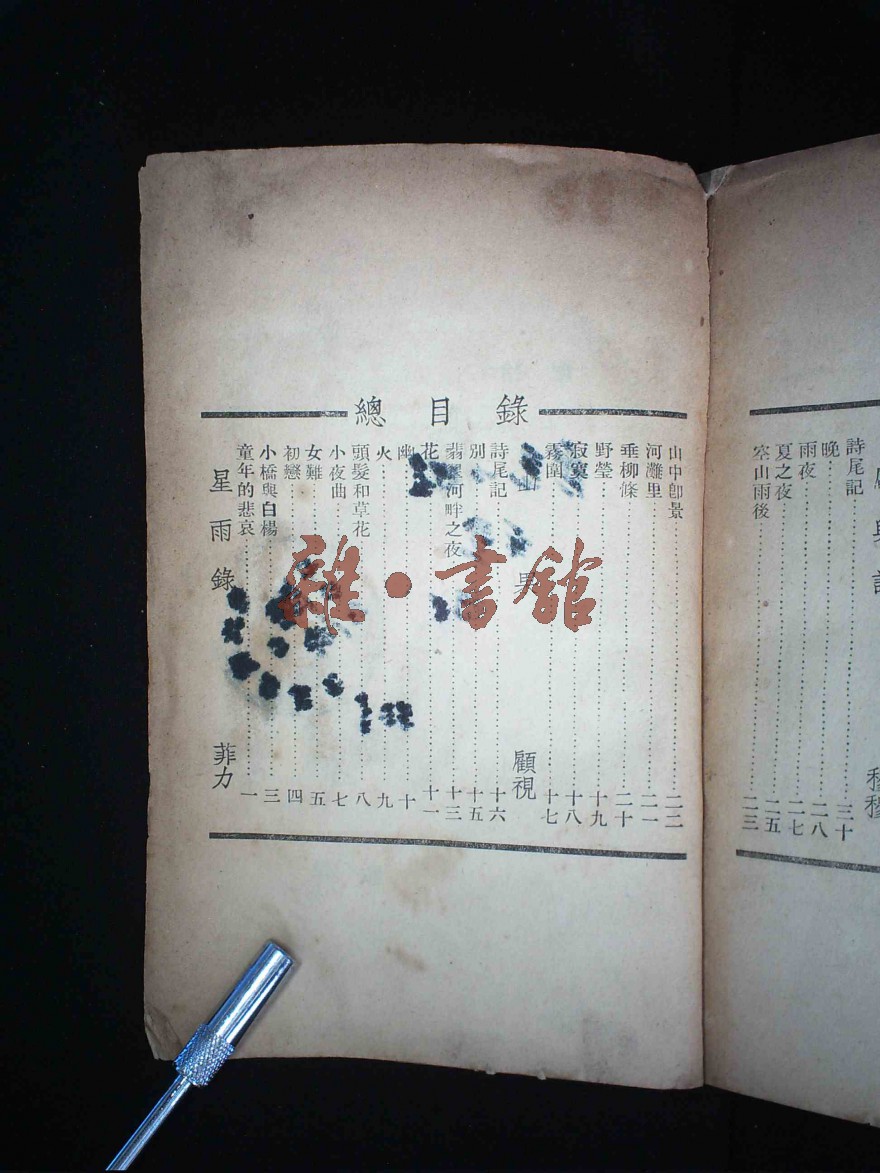 總目錄
星雨錄 菲力
童年的悲哀……一
小橋與白楊……三
初戀……四
女難……五
小夜曲……七
頭髮和草花……八
火……九
幽……十
花……十一
翡翠河畔之夜……十三
別……十五
詩尾記……十六
山 顧視
霧圍……十七
寂寞……十八
野瑩……十九
垂柳條……二十
河灘里……二一
山中卽景……二二
空山雨後……二三
夏之夜……二五
雨夜……二七
晚……二八
詩尾記……三十
與 穆穆
雜·書館